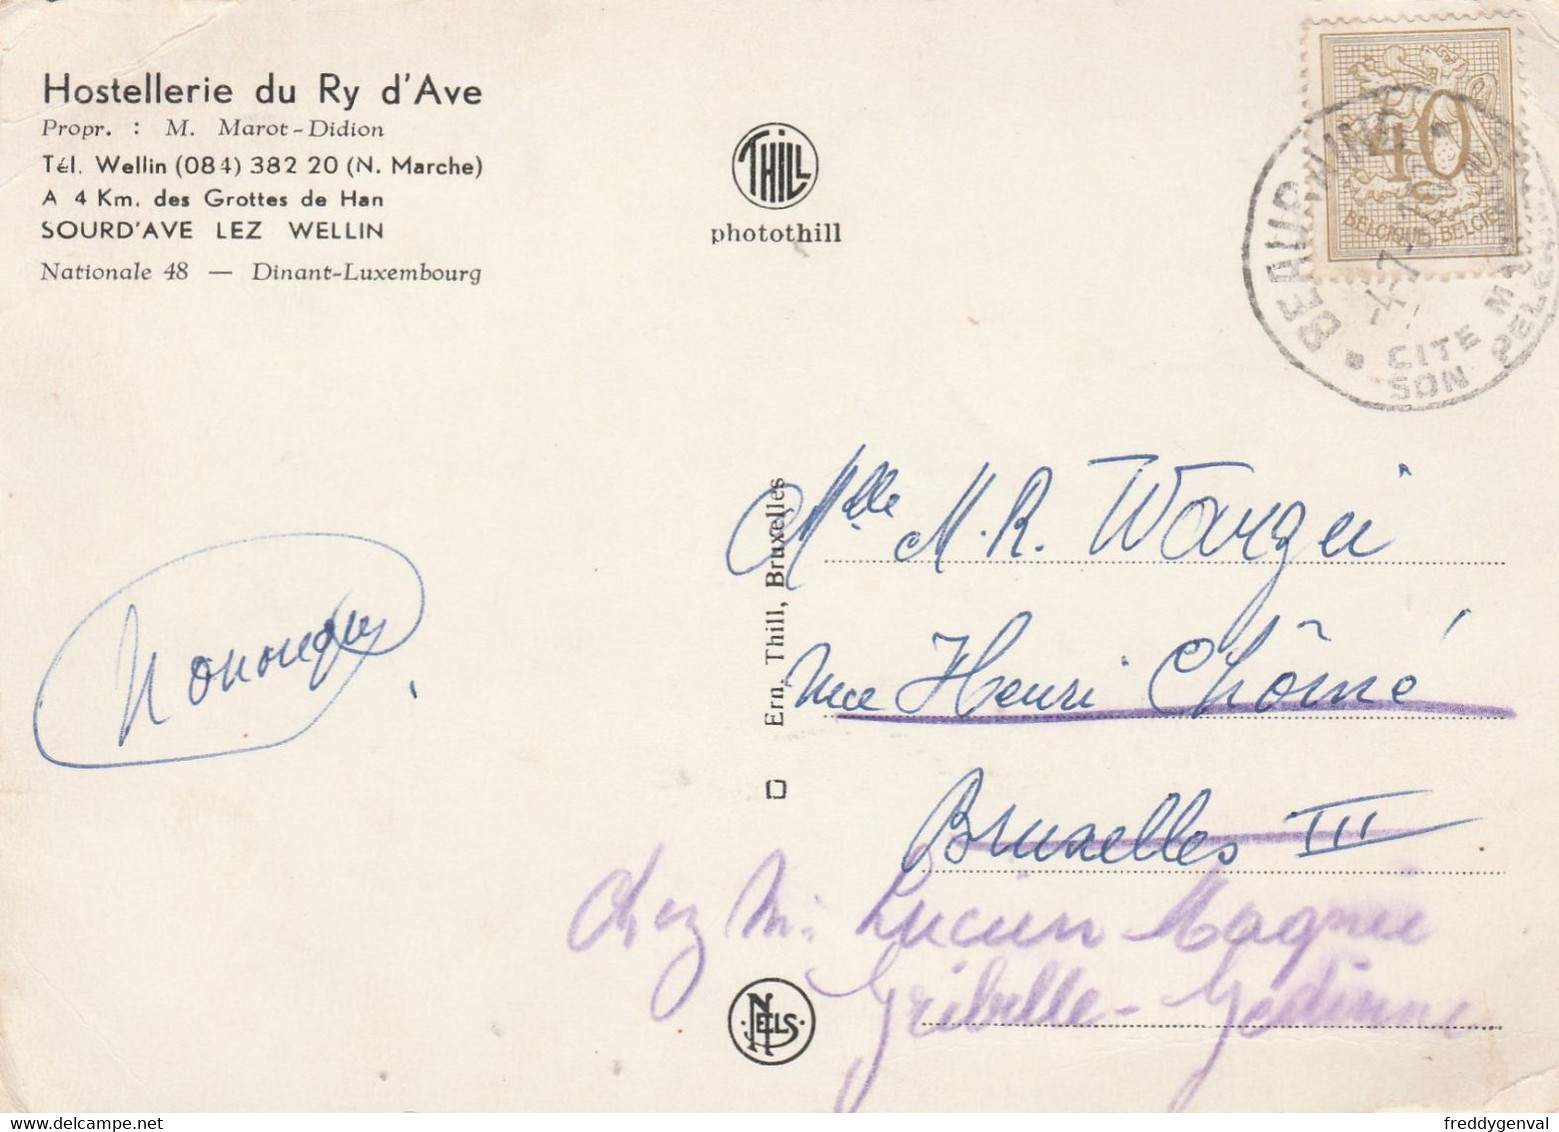 Hostellerie du Ry d'Ave
Propr. : M. Marot-Didion
Tél. Wellin (084) 382 20 (N. Marche)
A 4 Km. des Grottes de Han
SOURD'AVE LEZ WELLIN
Nationale 48 — Dinant-Luxembourg
THILL
photothill
40
BELGIQUE-BELGIE
BEAURAING
CITE
SON
Ern. Thill, Bruxelles
Mlle M.R. Warzei
rue Henri Chômé
Bruxelles III
Chez M. Lucien Magnie
Gribelle - Gedinne
NELS
freddygenval